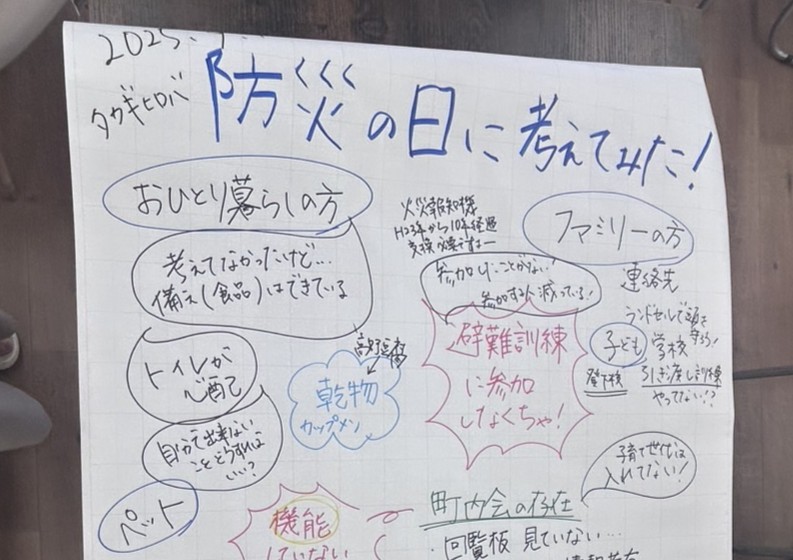 2025.
タカギヒロバ
防災の日に考えてみた!
おひとり暮らしの方
考えてなかったけど…
備え(食品)はできている
トイレが
心配
自分で出来ない
ことどうすれば
いい?
ペット
高野豆腐
乾物
カップメン
火災報知機
H23年から10年経過
交換必要ですよー
参加したことがない!
参加する人減っている!
避難訓練
に参加
しなくちゃ!
ファミリーの方
連絡先
ランドセルで頭を
守ろう!
子ども
学校
登下校
引き渡し訓練
やってない!?
子育て世代は
入れてない!
機能
していない
町内会の存在
・回覧板 見ていない…